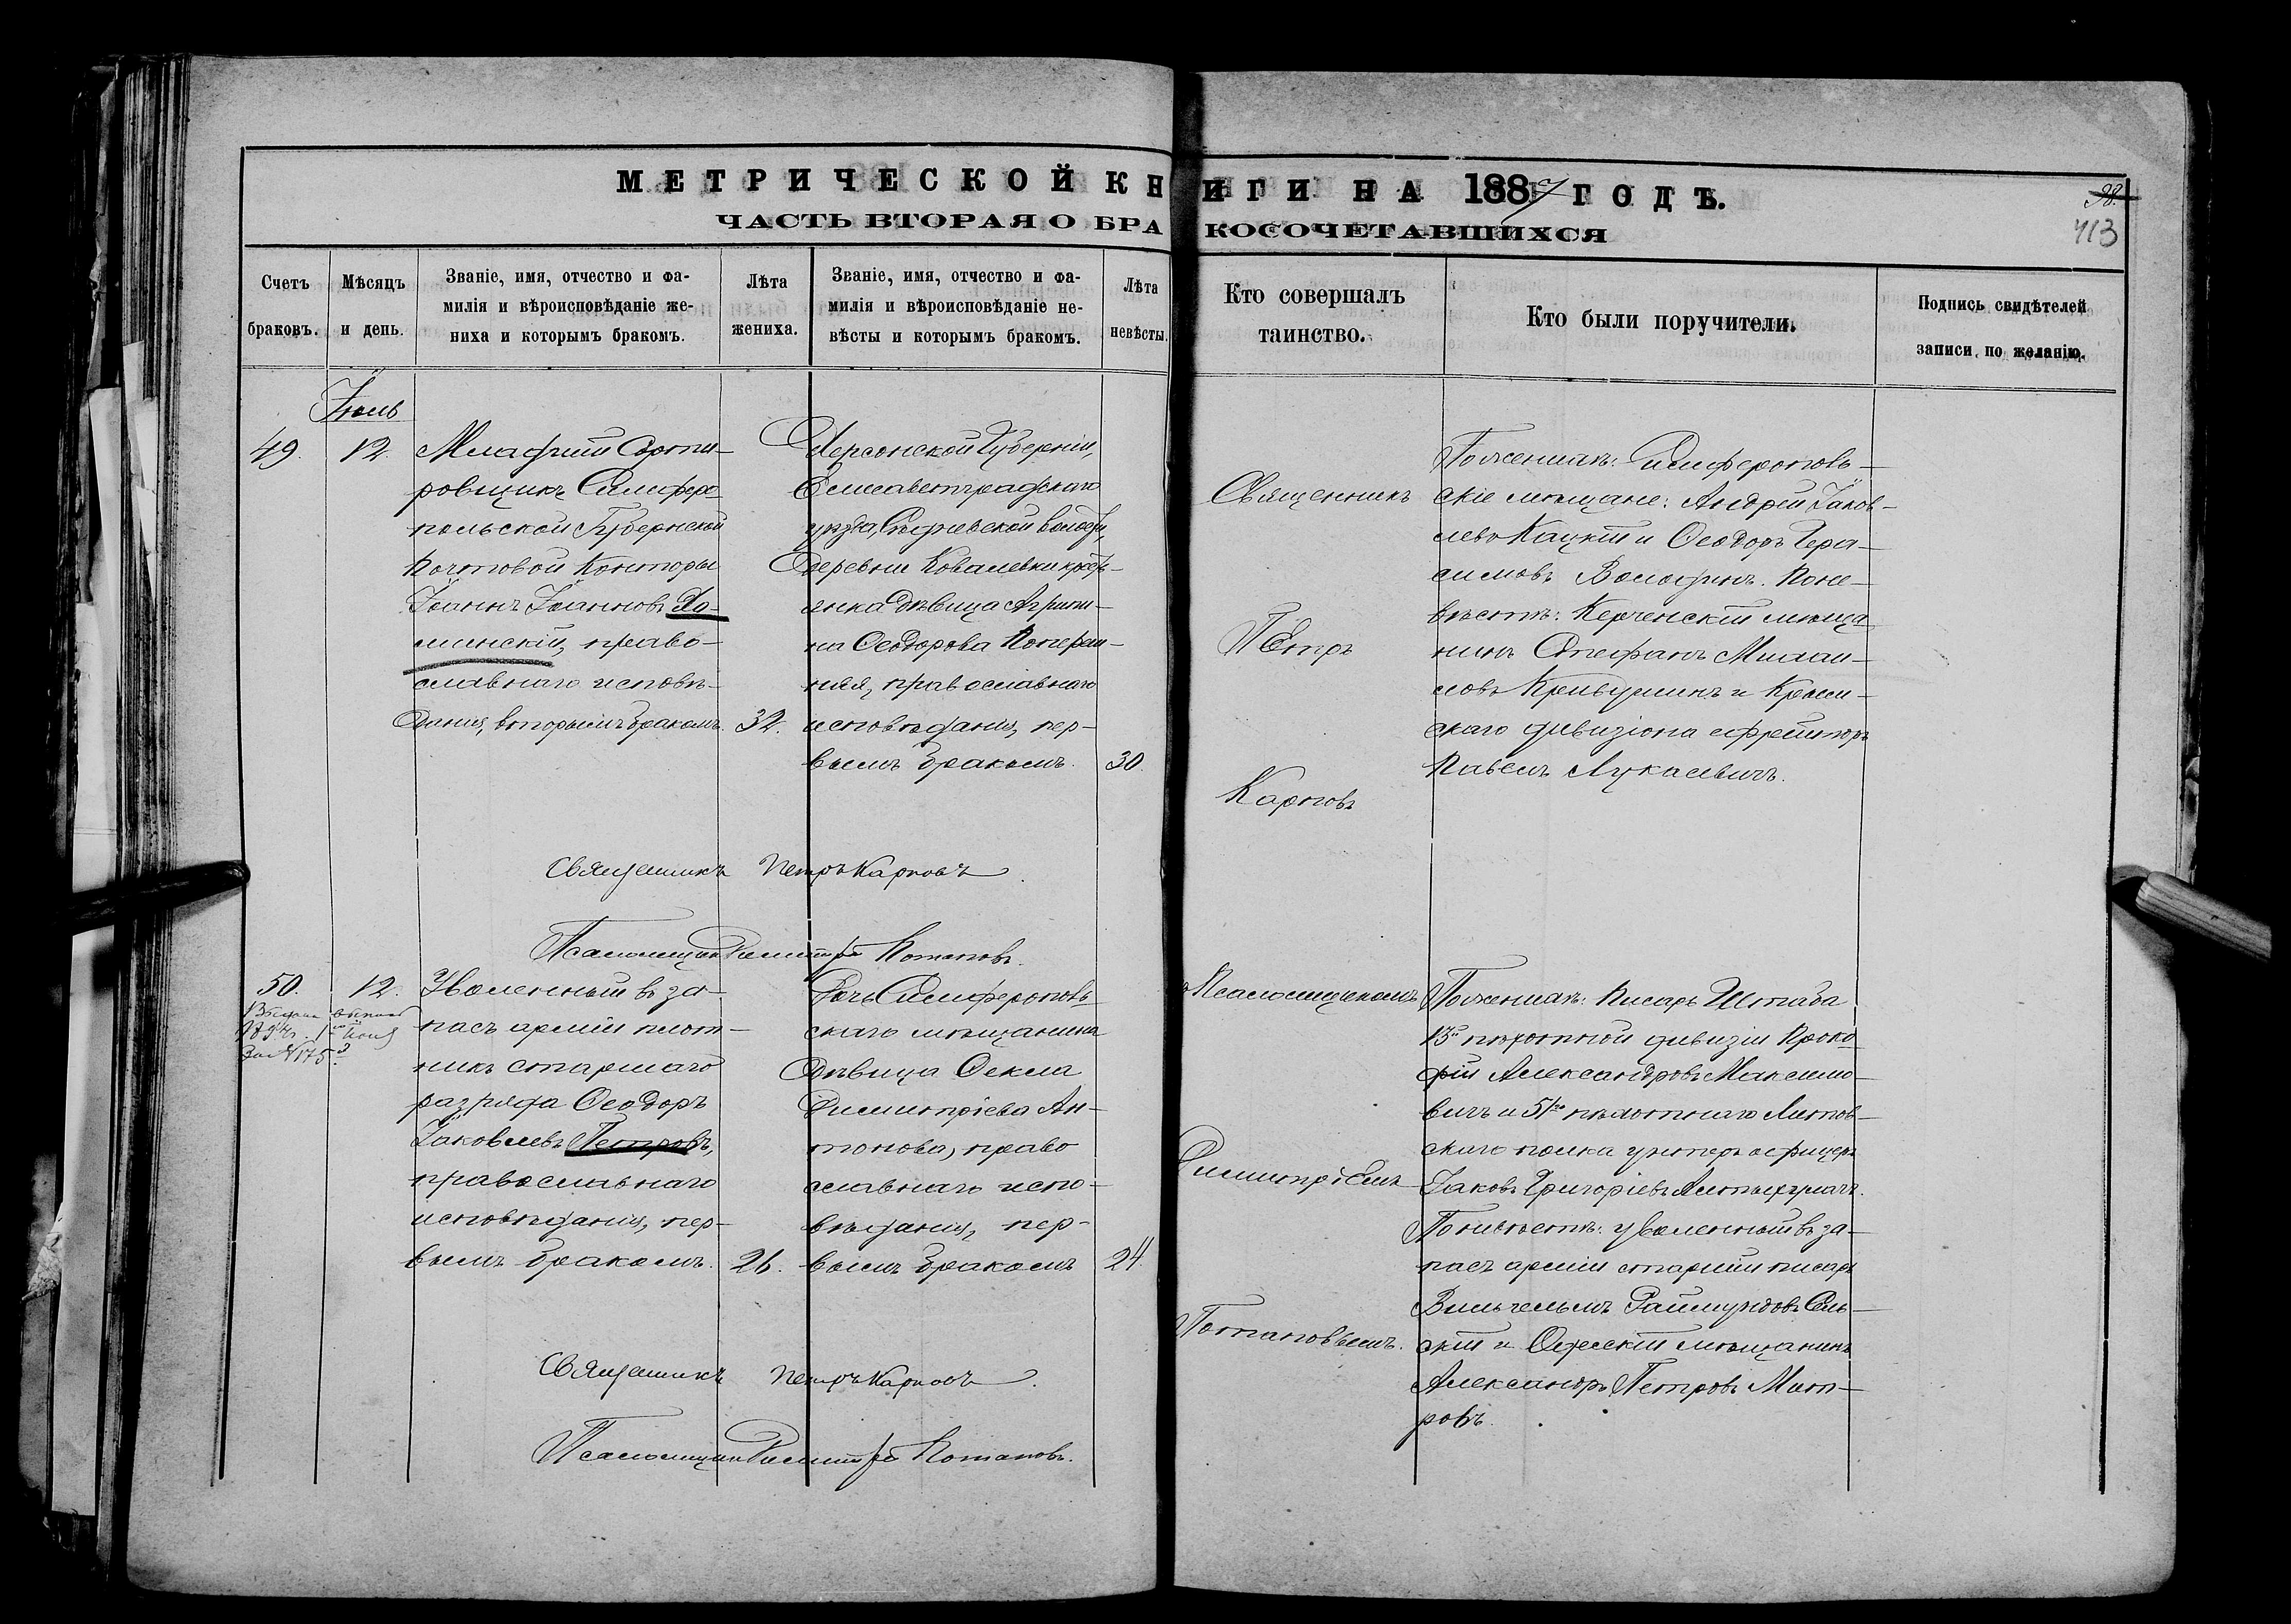 МЕТРИЧЕСКОЙ КНИГИ НА 1887 ГОДЪ.
ЧАСТЬ ВТОРАЯ О БРАКОСОЧЕТАВШИХСЯ
98.
413
Счетъ
браковъ.
Мѣсяцъ
и день.
Званіе, имя, отчество и фа-
милія и вѣроисповѣданіе же-
ниха и которымъ бракомъ.
Лѣта
жениха.
Званіе, имя, отчество и фа-
милія и вѣроисповѣданіе не-
вѣсты и которымъ бракомъ.
Лѣта
невѣсты.
Кто совершалъ
таинство.
Кто были поручители.
Подпись свидѣтелей
записи по желанію.
Іюль
49.
12.
Младшій Сорти-
ровщикъ Симферо-
польской Губернской
Почтовой Конторы
Іоаннъ Іоанновъ
минскій, право-
славнаго исповѣ-
данія, вторымъ бракомъ.
32.
Херсонской Губерніи,
Елисаветградскаго
уѣзда, волости,
деревни Ковалевки крест-
янка дѣвица Агрипи-
на Ѳеодорова
православнаго
исповѣданія, пер-
вымъ бракомъ.
30.
Священникъ
Пётръ
Карповъ
По женихѣ: Симферополь-
скіе мѣщане: Андрей Іаков-
левъ Кацкій и Ѳеодоръ Гера-
симовъ Волофинъ. По не-
вѣстѣ: Керченскій мѣща-
нинъ Стефанъ Михаи-
ловъ и Крым-
скаго дивизіона ефрейторъ
Павелъ Лукасевичъ.
Священникъ Петръ Карповъ
Псаломщикъ Димитрій Потаповъ.
50.
12.
1894г. 1го Іюня
За № 175
Уволенный въ за-
пасъ арміи плот-
никъ старшаго
разряда Ѳеодоръ
Іаковлевъ Петровъ,
православнаго
исповѣданія, пер-
вымъ бракомъ.
26.
Дочь Симферополь-
скаго мѣщанина
дѣвица Ѳекла
Димитріева Ан-
тонова, право
славнаго испо-
вѣданія, пер-
вымъ бракомъ
24.
Псаломщикомъ
Димитріемъ
Потаповымъ.
По женихѣ: Писарь Штаба
13й пѣхотной дивизіи Проко-
фій Александровъ Максимо-
вичъ и 51го пѣхотнаго Литов-
скаго полка унтеръ офицеръ
Іаковъ Григорьевъ
По невѣстѣ: уволенный въ за-
пасъ арміи старшій писарь
Вильгельмъ Раймундовъ
скій и Одесскій мѣщанинъ
Александръ Петровъ Мит-
ровъ.
Священникъ Петръ Карповъ
Псаломщикъ Димитрій Потаповъ.